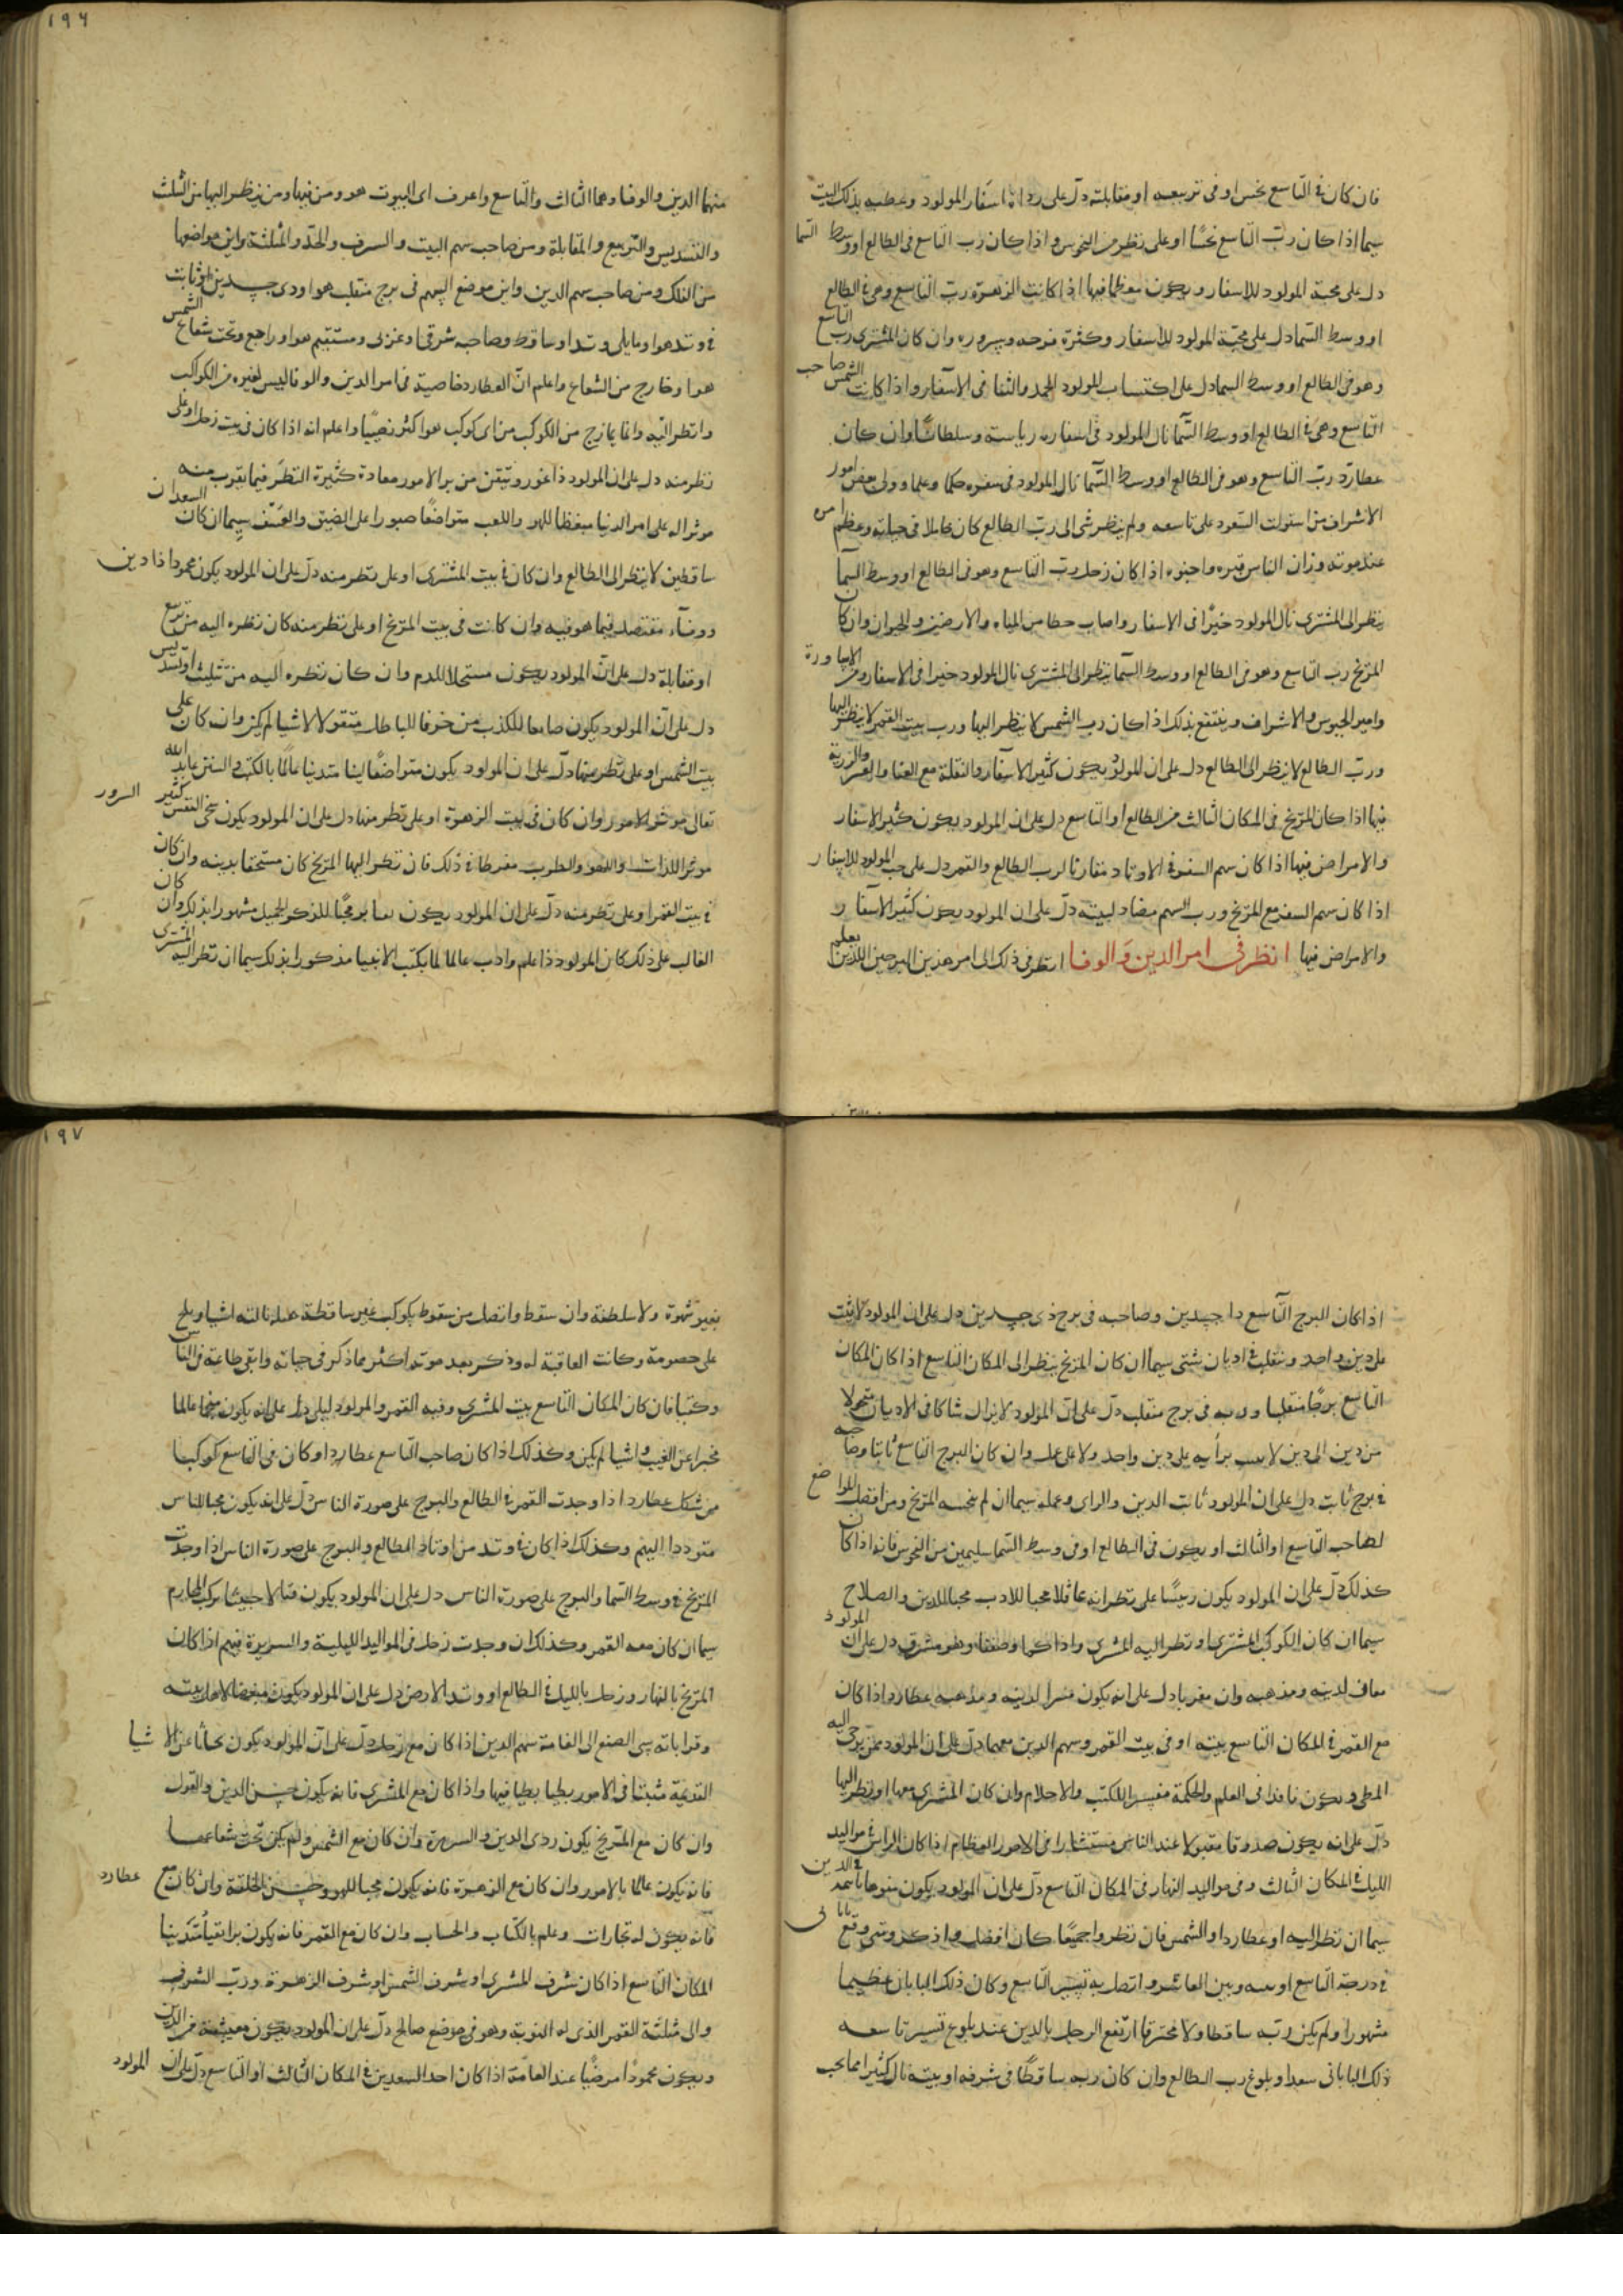 فان كان فى التاسع نحس او فى تربيعه او مقابلته دل على رداة اسفار المولود وعطبه بذلك البيت
سيما اذا كان رب التاسع نحسا او على نظر من النحوس واذا كان رب التاسع فى الطالع او وسط السما
دل على محبة المولود للاسفار ويكون معظما فيها اذا كانت الزهرة رب التاسع وهى فى الطالع
او وسط السما دل على محبة المولود للاسفار وكثرة فرحه وسروره وان كان المشترى رب التاسع
وهو فى الطالع او وسط السما دل على اكتساب المولود الحمد والثنا فى الاسفار واذا كانت الشمس صاحب
التاسع وهى فى الطالع او وسط السما نال المولود فى اسفاره رياسة وسلطانا وان كان
عطارد رب التاسع وهو فى الطالع او وسط السما نال المولود فى سفره حكما وعلما وولى بعض امور
الاشراف من استولت السعود على تاسعه ولم ينظر شى الى رب الطالع كان خاملا فى حياته وعظم امره
عند موته وزان الناس قبره واحبوه اذا كان زحل رب التاسع وهو فى الطالع او وسط السما
ينظر الى المشترى نال المولود خيرا فى الاسفار واصاب حظا من المياه والارضين والحيوان وان كان
المريخ رب التاسع وهو فى الطالع او وسط السما ينظر الى المشترى نال المولود خيرا فى الاسفار ومن الاساورة
وامير الجيوش والاشراف وينتفع بذلك اذا كان رب الشمس لا ينظر اليها ورب بيت القمر لا ينظر اليها
ورب الطالع لا ينظر الى الطالع دل على ان المولود يكون كثير الاسفار والنقلة مع العنا والعسر والزرية
فيها اذا كان المريخ فى المكان الثالث من الطالع او التاسع دل على ان المولود يكون كثير الاسفار
والامراض فيها اذا كان سهم السفر فى الاوتاد مقارنا لرب الطالع والقمر دل على حب المولود للاسفار
اذا كان سهم السفر مع المريخ ورب السهم مضاد لبيته دل على ان المولود يكون كثير الاسفار
والامراض فيها انظر فى امر الدين والوفا انتظر فى ذلك الى امر هذين البرجين اللذين يعلم
١٩٦
منهما الدين والوفا وهما الثالث والتاسع واعرف اى البيوت هو ومن فيها ومن ينظر اليها من الثلث
والتسديس والتربيع والمقابلة ومن صاحب سهم البيت والشرف والحد والمثلثة واين مواضعها
من الفلك ومن صاحب سهم الدين واين موضع السهم فى برج منقلب هو او ذى جسدين او ثابت
فى وتد هو او ما يلى وتدا او ساقط وصاحبه شرقى او غربى ومستقيم هو او راجع وتحت شعاع الشمس
هو او خارج من الشعاع واعلم ان العطارد خاصية فى امر الدين والوفا ليس لغيره من الكواكب
وانظر اليه وانما يمازج من الكواكب من اى كوكب هو اكثر نصيبا واعلم انه اذا كان فى بيت زحل او على
نظر منه دل على ان المولود ذا غور ويتقن من بر الامور معادة كثيرة النظر فيما يقرب منه
موثر اله على امر الدنيا مبغضا للهو واللعب متواضعا صبورا على الضيق والعسف سيما ان كان السعدان
ساقطين لا ينظر الى الطالع وان كان فى بيت المشترى او على نظر منه دل على ان المولود يكون محمودا ذا دين
ووفاء مقتصد فيما هو فيه وان كانت فى بيت المريخ او على نظر منه كان نظره اليه من تربيع
او مقابلة دل على ان المولود يكون مستحلا للدم وان كان نظره اليه من تثليث او تسديس
دل على ان المولود يكون صانعا للكذب مزخرفا للباطل متقولا لاشيا لم يكن وان كان على
بيت الشمس او على نظر منها دل على ان المولود يكون متواضعا لينا متدينا عالما بالكتب والسنن عابد الله
تعالى موثر الامور وان كان فى بيت الزهرة او على نظر منها دل على ان المولود يكون سخى النفس كثير السرور
موثر اللذات واللهو والطرب مفرطا فى ذلك فان نظر اليها المريخ كان مستخفا بدينه وان كان
فى بيت القمر او على نظر منه دل على ان المولود يكون محبا للذكر الجميل مشهورا بذلك وان كان
الغالب على ذلك كان المولود ذا علم وادب عالما لما بكتب الانبيا مذكورا بذلك سيما ان نظر اليه المشترى
اذا كان البرج التاسع ذا جسدين وصاحبه فى برج ذى جسدين دل على ان المولود لا يثبت
على دين واحد وينقلب فى اديان شتى سيما ان كان المريخ ينظر الى المكان التاسع اذا كان المكان
التاسع برجا منقلبا وربه فى برج منقلب دل على ان المولود لا يزال شاكا فى الاديان متحولا
من دين الى دين لا برأيه على دين واحد ولا على عمل وان كان البرج التاسع ثابتا وصاحبه
فى برج ثابت دل على ان المولود ثابت الدين والراى وعمله سيما ان لم ينحسه المريخ ومن افضل المواضع
لصاحب التاسع او الثالث او يكون فى الطالع او فى وسط السما سليمين من النحوس فانه اذا كان
كذلك دل على ان المولود يكون رئيسا على نظرائه عاقلا محبا للادب محبا للدين والصلاح
سيما ان كان الكوكب المشترى او نظر اليه المشترى واذا كما وصفنا وهو مشرق دل على ان المولود
معاف لدينه ومذهبه وان مغربا دل على انه يكون مسرا لدينه ومذهبه عطارد اذا كان
مع القمر فى المكان التاسع بيته او فى بيت القمر وسهم الدين معهما دل على ان المولود ممن يوحى اليه
ويكون نافذا فى العلم والحكمة مفسرا للكتب والاحلام وان كان المشترى معها او نظر اليها
دل على انه يكون صدوقا مقبولا عند الناس مستشارا فى الامور العظام اذا كان الراس فى مواليد
الليل فى المكان الثالث وفى مواليد النهار فى المكان التاسع دل على ان المولود يكون فى الدين
سيما ان نظر اليه او عطارد او الشمس فان نظروا جميعا كان افضل واذكر ومتى وقع
فى درجة التاسع او بينه وبين العاشر واتصل به تسيير التاسع وكان ذلك البابان عظيما
مشهورا ولم يكن ربه ساقطا ولا محترقا ارتفع الرجل بالدين عند بلوغ تسيير تاسعه
ذلك البابانى سعدا وبلوغ رب الطالع وان كان ربه ساقطا فى شرفه او بيته نال كثيرا مما يحب
١٩٧
بغير شهوة ولا سلطنة وان سقط واتصل من سقوطه بكوكب غير ساقط نالته اشيا وبلغ
على خصومة وكانت العاقبة له وذكر بعد موته اكثر مما ذكر فى حياته وابقى طاعة فى الناس
وكتبا فان كان المكان التاسع بيت المشترى وفيه القمر والمولود ليلى دل على انه يكون منجما عالما
مخبرا عن الغيب واشيا لم يكن وكذلك اذا كان صاحب التاسع عطارد او كان فى التاسع كوكبا
من شكل عطارد اذا وجدت القمر فى الطالع والبرج على صورة الناس دل على انه يكون محبا للناس
متوددا اليهم وكذلك اذا كان فى وتد من اوتاد الطالع والبرج على صورة الناس اذا وجدت
المريخ فى وسط السما والبرج على صورة الناس دل على ان المولود يكون قتالا خبيثا يركب المحارم
سيما ان كان معه القمر وكذلك ان وجدت زحل فى المواليد الليلية والسريرة فيهم اذا كان
المريخ بالنهار وزحل بالليل فى الطالع او وتد الارض دل على ان المولود يكون مبغضا لاهل بيته
وقراباته سى الصنع الى العامة سهم الدين اذا كان مع زحل دل على ان المولود يكون بحاثا عن الاشيا
القديمة مثبتا فى الامور بطيا بطيا فيها واذا كان مع المشترى فانه يكون حسن الدين والقول
وان كان مع المريخ يكون ردى الدين والسريرة وان كان مع الشمس ولم يكن تحت شعاعها
فانه يكون عالما بالامور وان كان مع الزهرة فانه يكون محبا للهو وحسن الخلقة وان كان مع عطارد
فانه يكون له تجارات وعلم بالكتاب والحساب وان كان مع القمر فانه يكون برا تقيا متدينا
المكان التاسع اذا كان شرف المشترى او شرف الشمس او شرف الزهرة ورب الشرف
والى مثلثة القمر الذى له النوبة وهو فى موضع صالح دل على ان المولود يكون معيشته من الدين
ويكون محمودا مرضيا عند العامة اذا كان احد السعدين فى المكان الثالث او التاسع دل على ان المولود